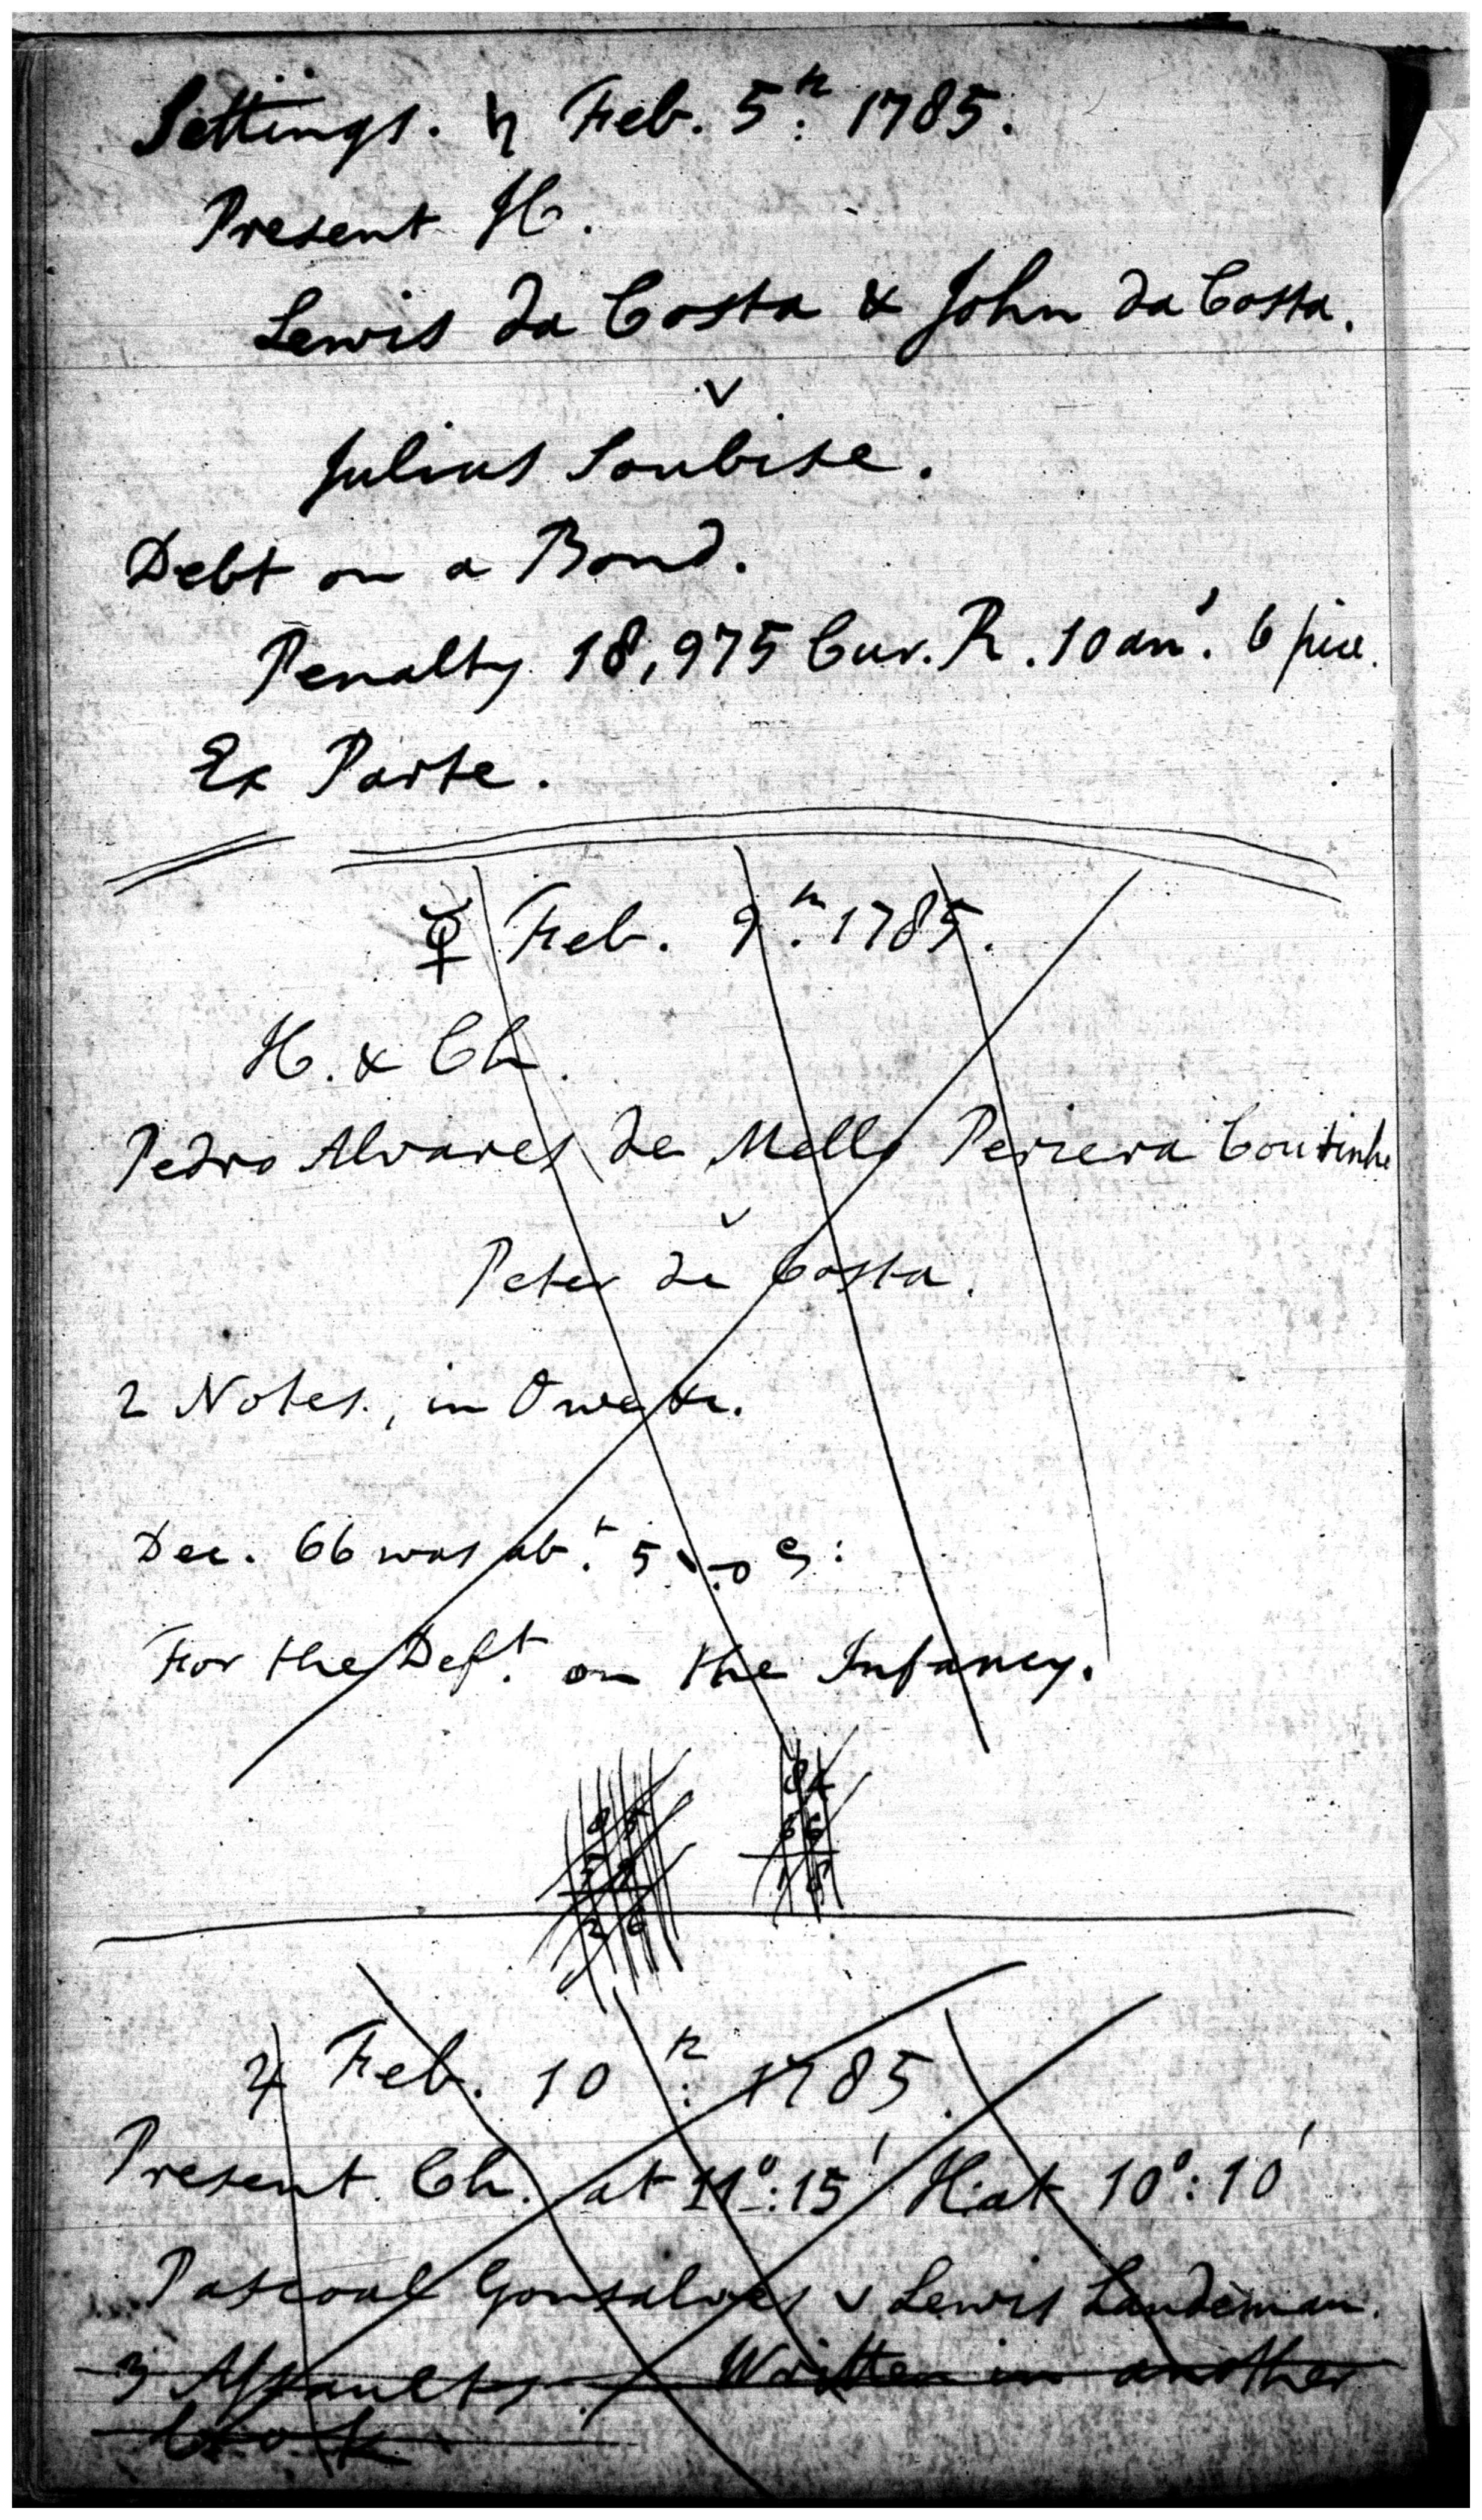 Settings. ♄ Feb. 5th. 1785.
Present H.
Lewis da Costa & John da Costa.
v
Julius Soubise.
Debt on a Bond.
Penalty 18,975 Cur. R. 10 ans. 6 pice.
Ex Parte.
☿ Feb. 9th. 1785.
H. & Ch.
Pedro Alvares de Mello Periera Coutinho
v
Peter de Costa.
2 Notes, in
Dec. 66 was abt. 5
For the Deft. on the Infancy.
♃ Feb. 10th. 1785.
Present. Ch. at 11°:15' H. at 10°:10'
Pascoal Gonsalves v Lewis Landeman.
3 Assaults. Written in another
book